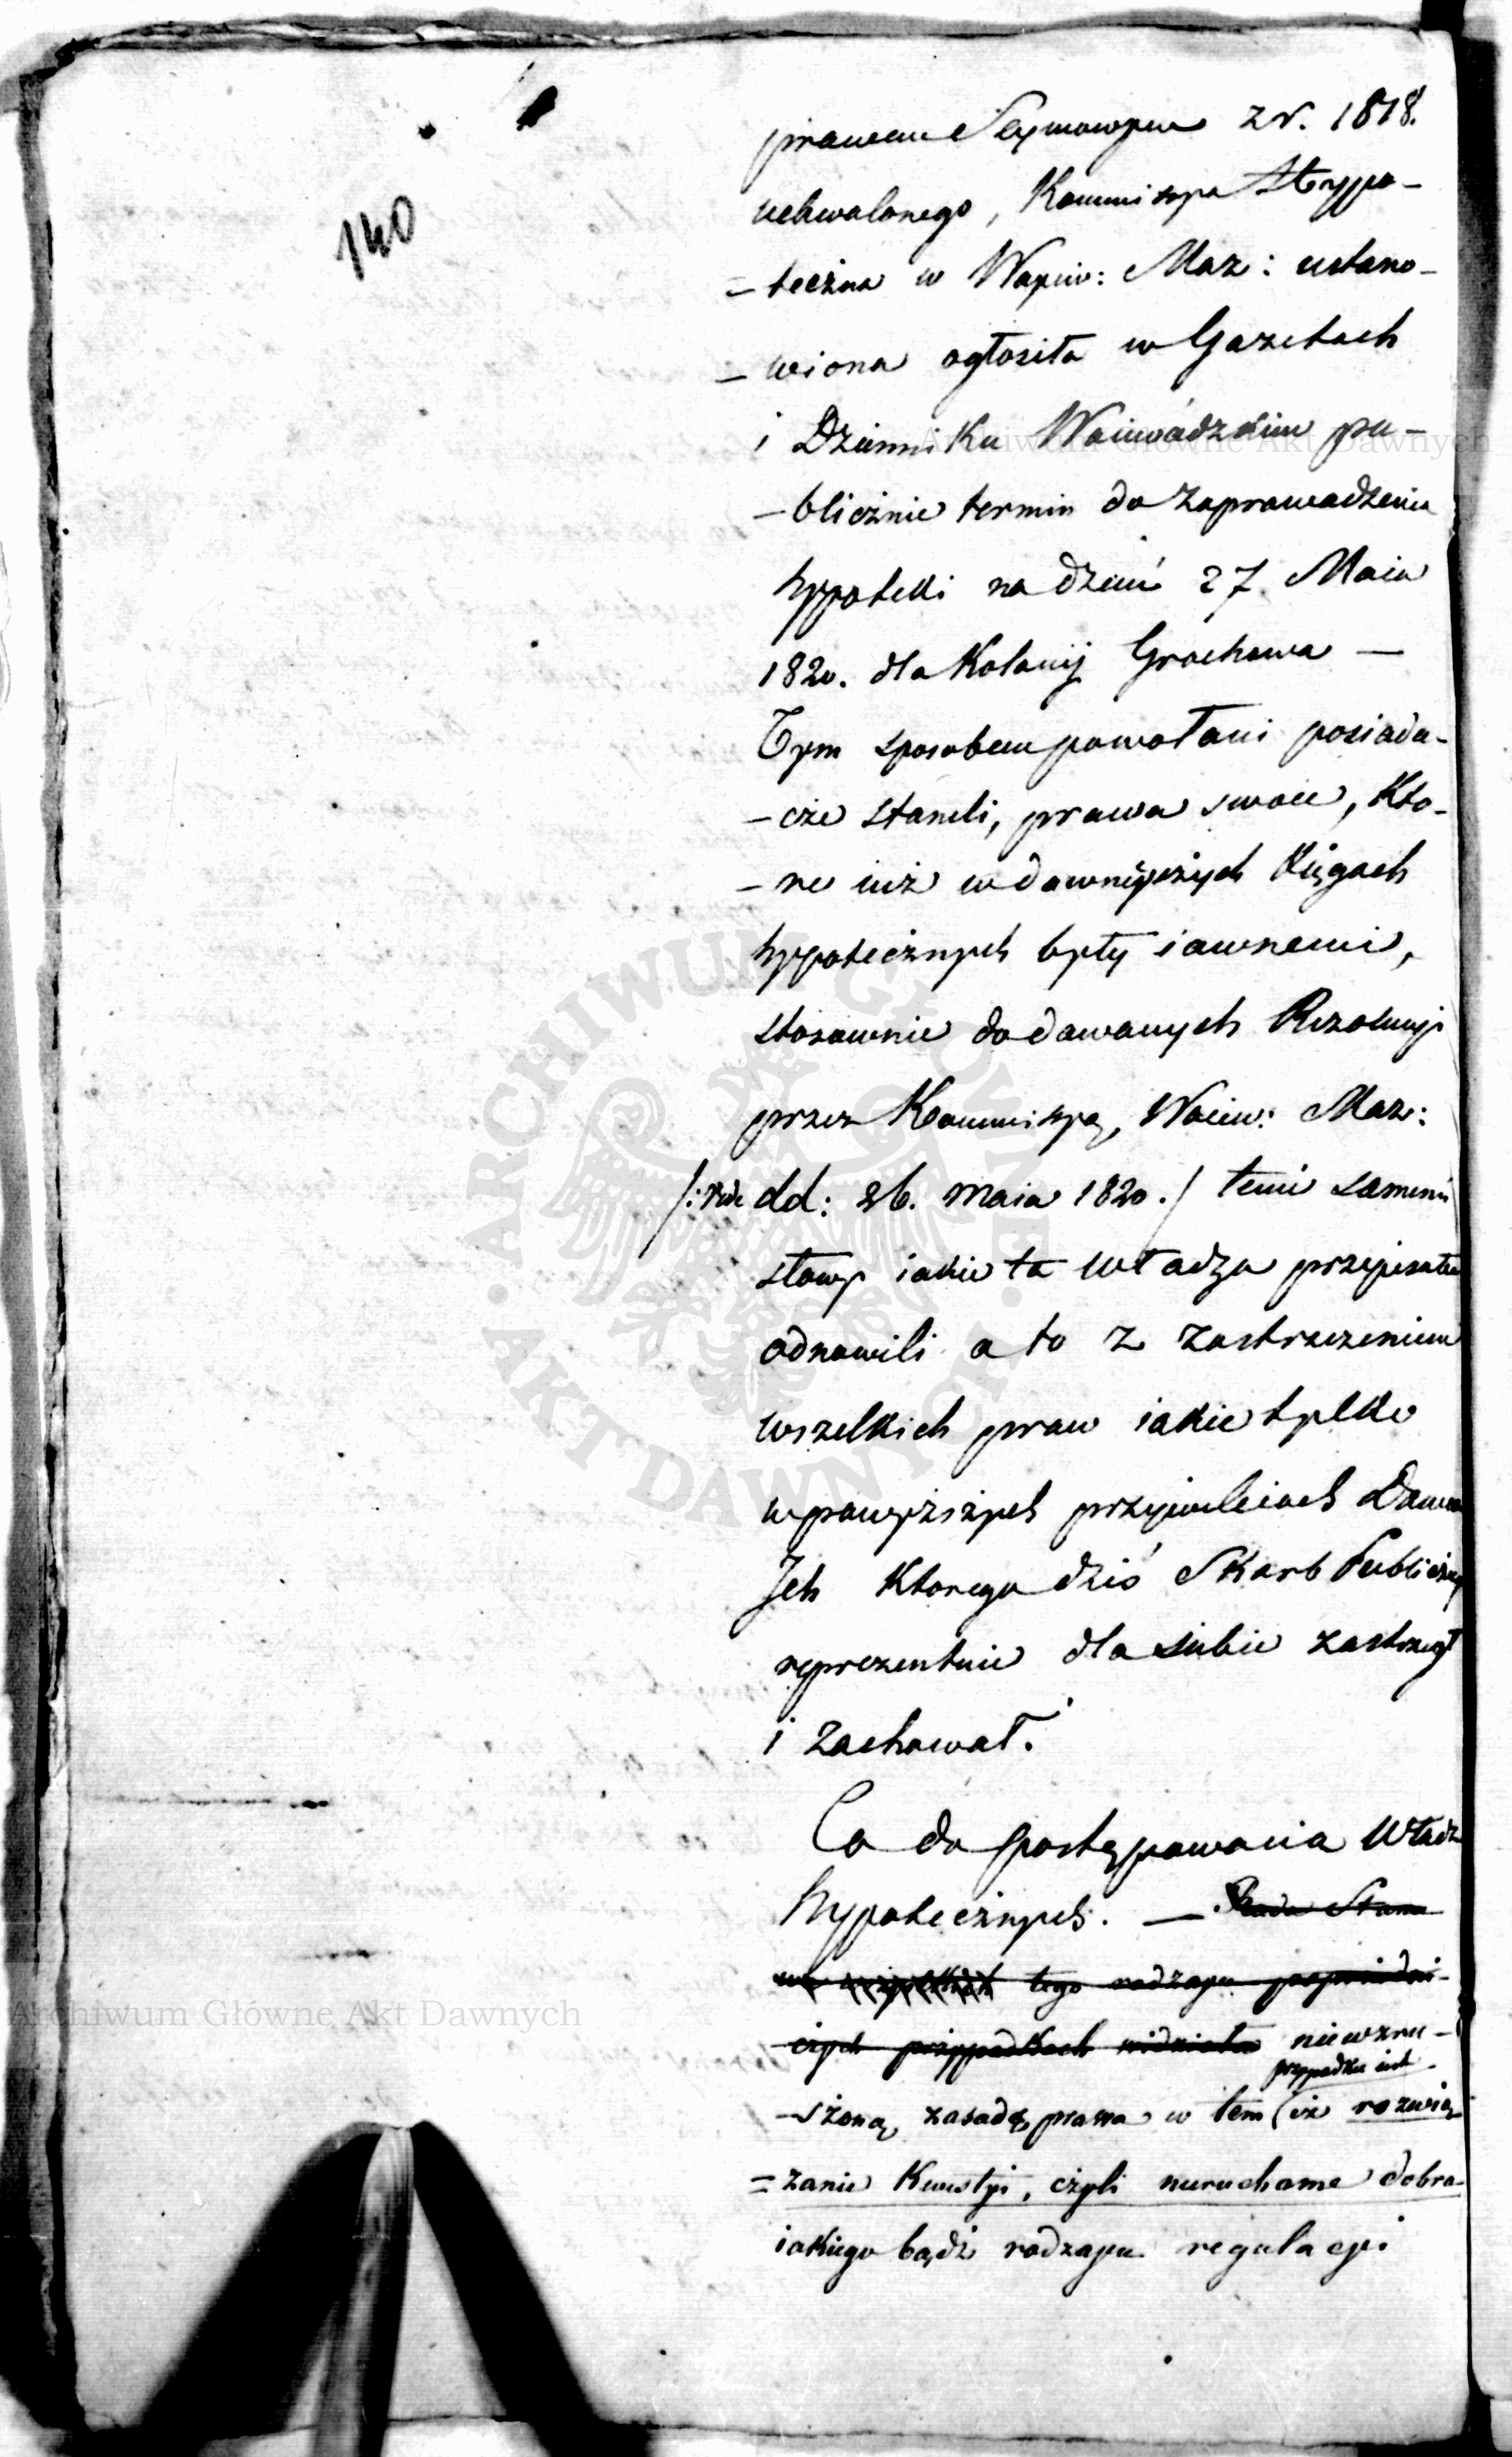 140
prawem Seymowym z r. 1818.
uchwalonego, Kommissya Hyppo-
-teczna w Woiew: Maz: ustano-
-wiona ogłosiła w Gazetach
i Dzienniku Woiewódzkim pu-
-blicznie termin do zaprowadzenia
hyppoteki na dzień 27. Maia
1820. dla Kolonij Grochowa —
Tym sposobem powołani posiada-
-cze staneli, prawa swoie, kto-
-re iuż w dawnieyszych Xięgach
hyppotecznych były iawnemi,
stosownie do dawanych Rezolucyi
przez Kommissyą Woiew: Maz:
/: vide dd: 26. Maia 1820. / temi samemi
słowy iakie ta władza przepisała
odnowili a to z zastrzeżeniem
wszelkich praw iakie tylko
w powyższych przywileiach Dawca
Jch ktorego dziś Skarb Publiczny
reprezentuie dla siebie zastrzegł
i zachował.
Co do postępowania Władz
hypotecznych. — Rada Stanu
tego rodzaju poprzedni-
-czych przypadkach widziała niewzru-
przypadku iest
-szoną zasadę prawa w tem (iż rozwią
=zanie Kwestyi, czyli nieruchome dobra
iakiego bądź rodzaiu regulacyi
Archiwum Główne Akt Dawnych
Archiwum Główne Akt Dawnych
ARCHIWUM GŁÓWNE
AKT DAWNYCH